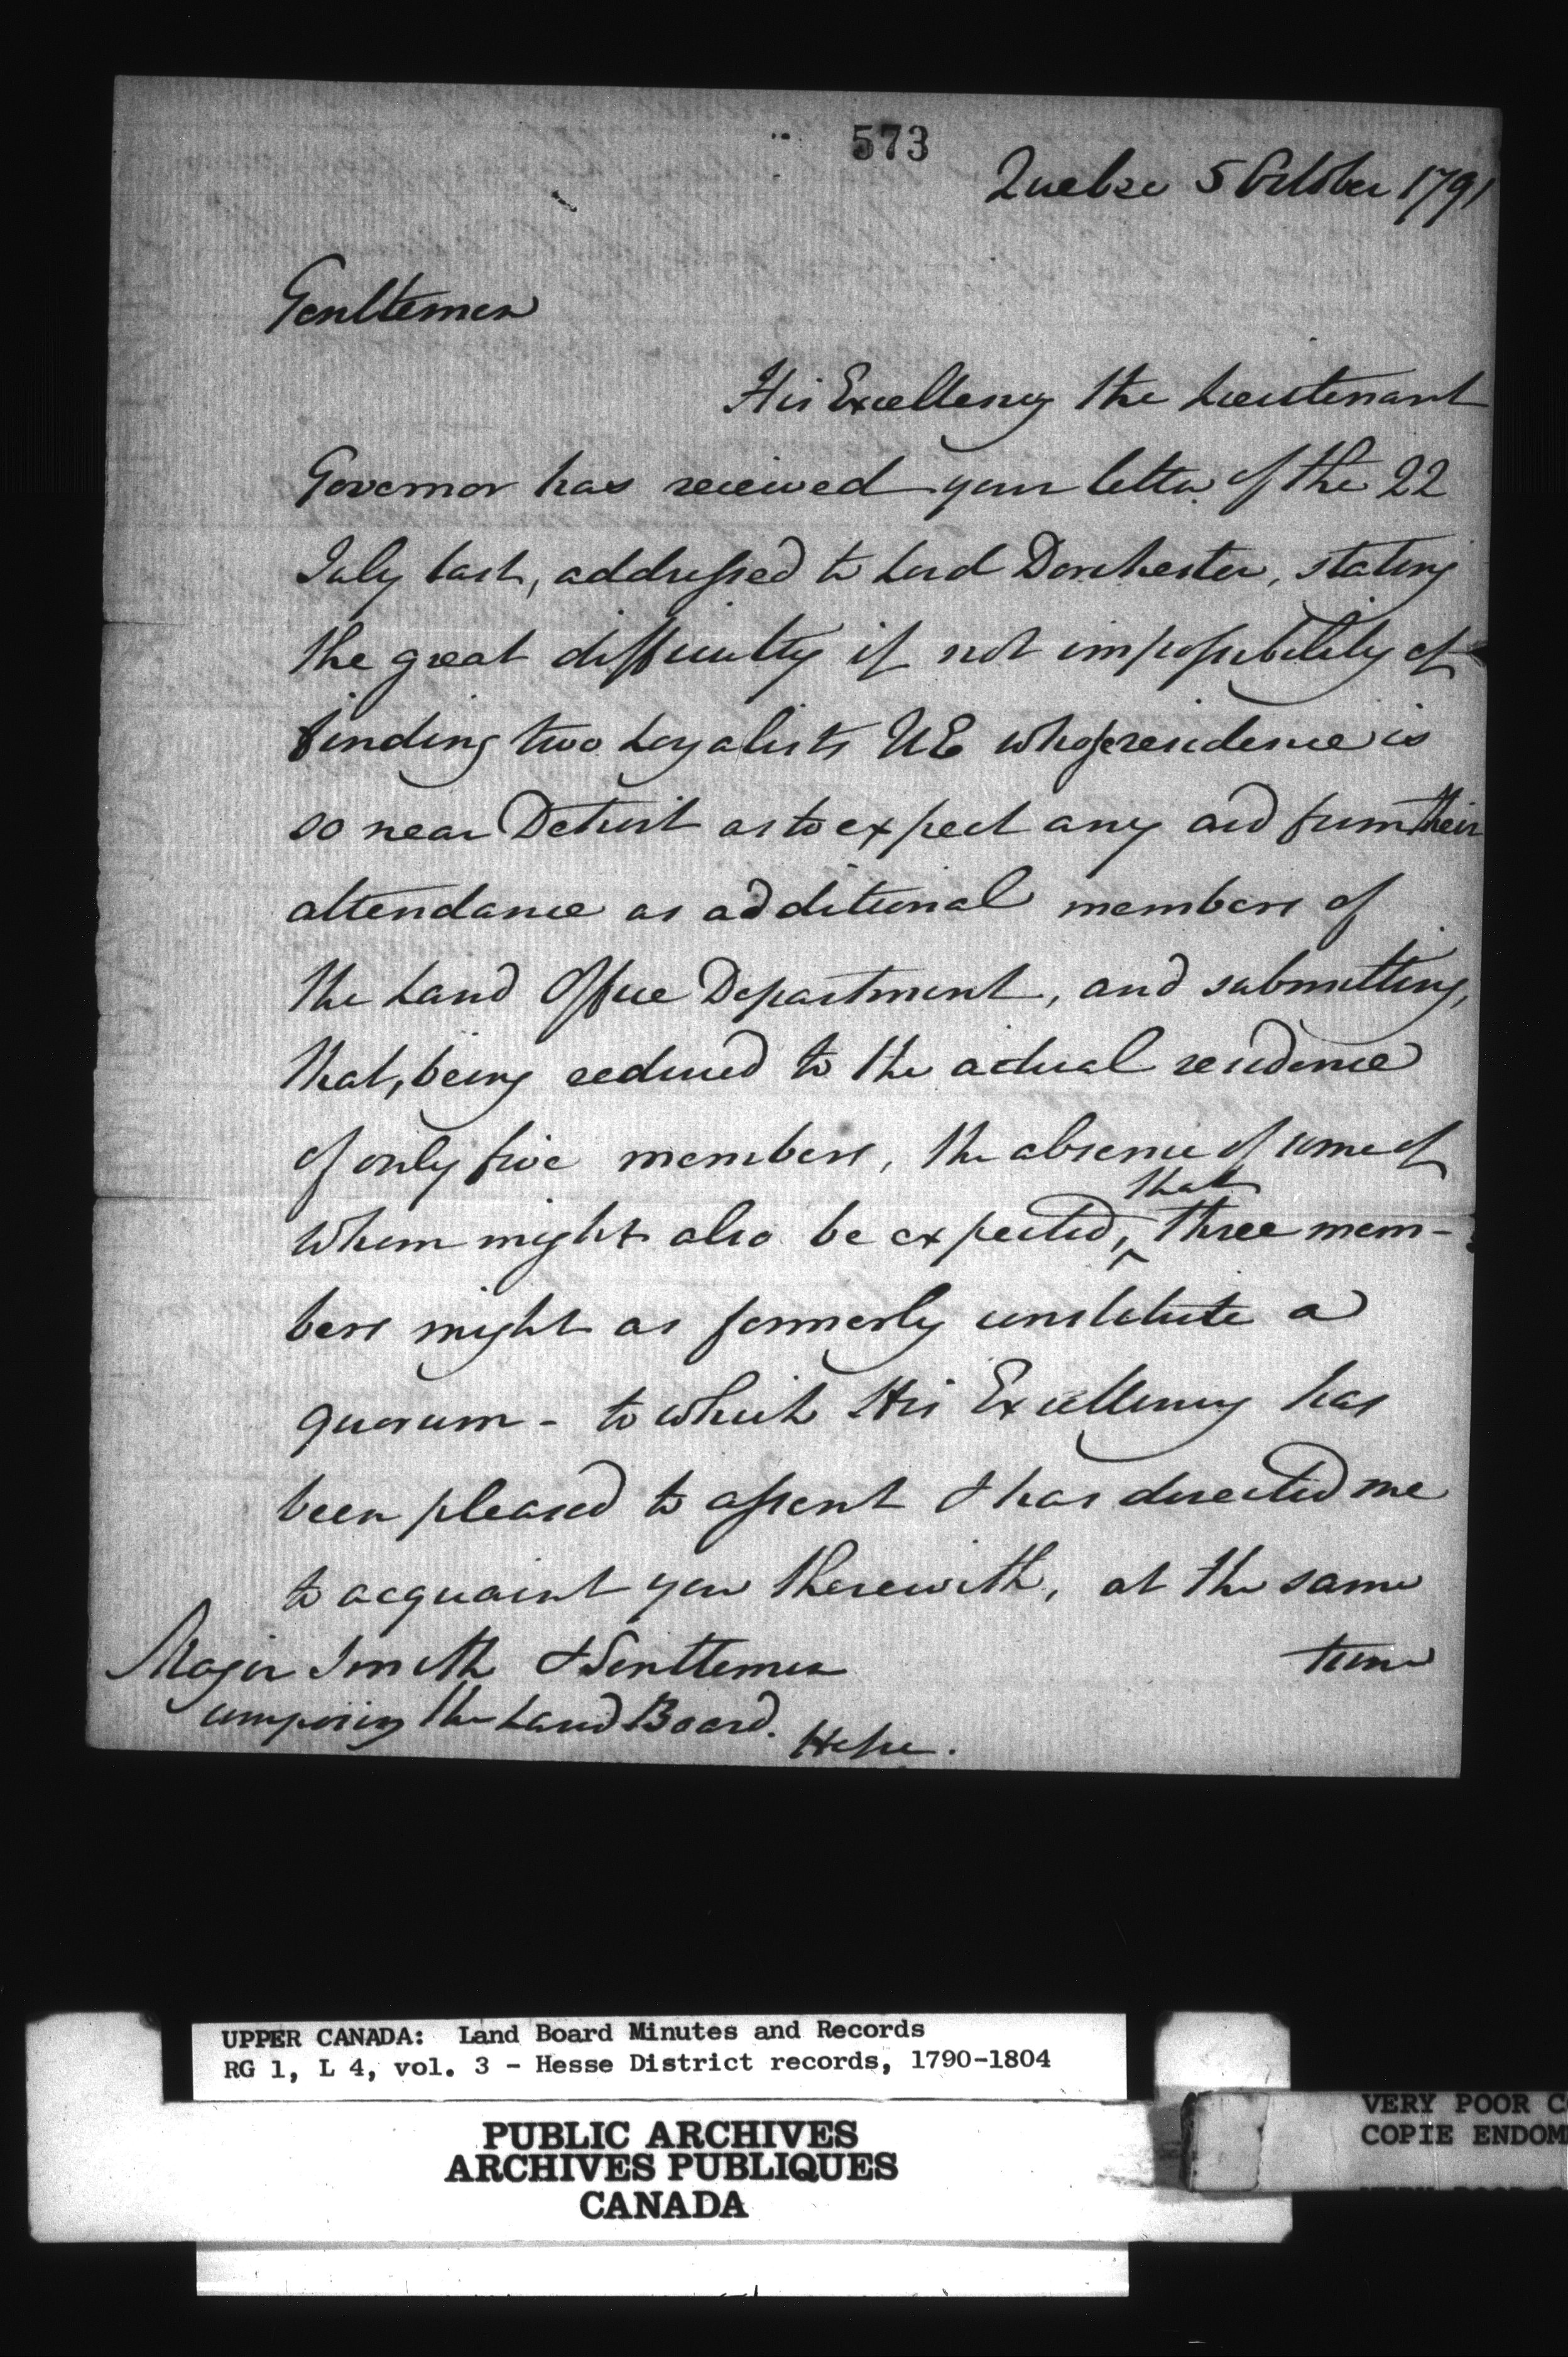 573
Quebec 5 October 1791
Gentlemen
His Excellency the Lieutenant
Governor has received your letter of the 22
July last, addressed to Lord Dorchester, stating
the great difficulty if not impossibility of
finding two Loyalists UE whose residence is
so near Detroit as to expect any aid from their
attendance as additional members of
the Land Office Department, and submitting,
that, being reduced to the actual residence
of only five members, the absence of some of
that
whom might also be expected, ^ three mem-
bers might as formerly constitute a
quorum - to which His Excellency has
been pleased to assent & has directed me
to acquaint you therewith, at the same
time
Major Smith & Gentlemen
composing the Land Board.
Hesse.
UPPER CANADA: Land Board Minutes and Records
RG 1, L 4, vol. 3 - Hesse District records, 1790-1804
PUBLIC ARCHIVES
ARCHIVES PUBLIQUES
CANADA
VERY POOR C
COPIE ENDOM